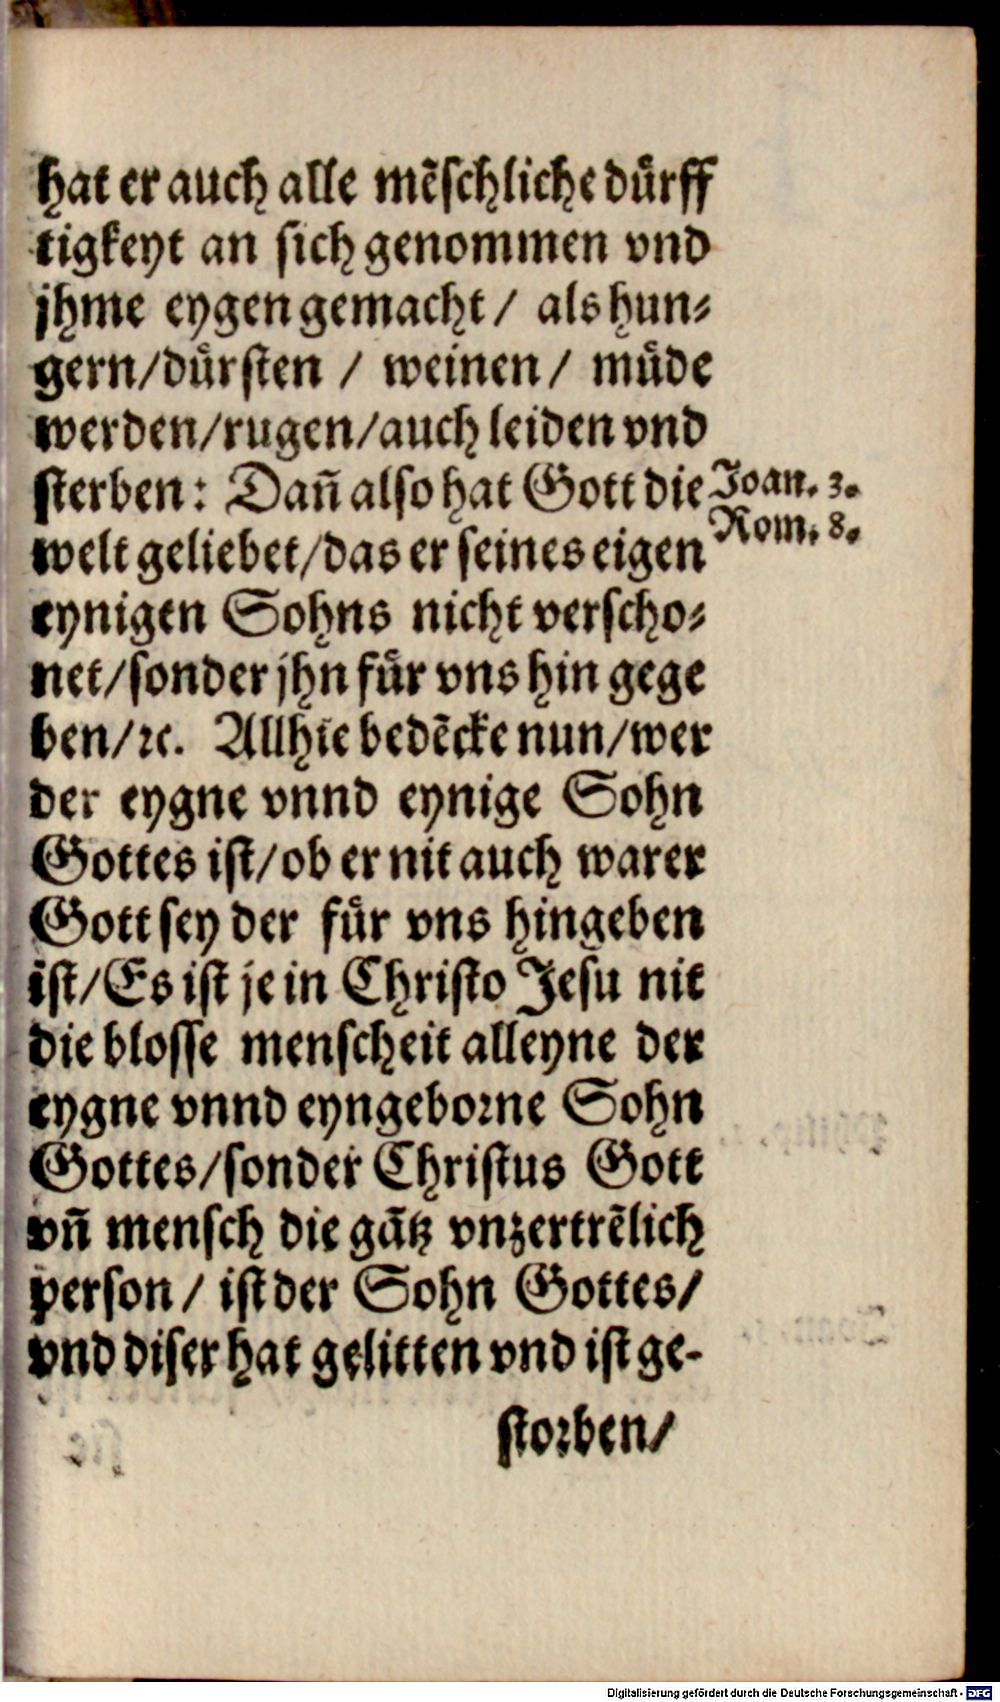 hat er auch alle mẽschliche dürff
tigkeyt an sich genommen vnd
jhme eygen gemacht / als hun⸗
gern/dürsten / weinen / müde
werden/rugen/auch leiden vnd
sterben: Dañ also hat Gott die
Joan. 3.
Rom. 8.
welt geliebet/das er seines eigen
eynigen Sohns nicht verscho⸗
net/sonder jhn für vns hin gege
ben/ꝛc. Allhie bedẽcke nun/wer
der eygne vnnd eynige Sohn
Gottes ist/ob er nit auch warer
Gott sey der für vns hingeben
ist/Es ist je in Christo Jesu nit
die blosse menscheit alleyne der
eygne vnnd eyngeborne Sohn
Gottes/sonder Christus Gott
vñ mensch die gãtz vnzertrẽlich
person / ist der Sohn Gottes/
vnd diser hat gelitten vnd ist ge-
storben/
Digitalisierung gefördert durch die Deutsche Forschungsgemeinschaft - DFG